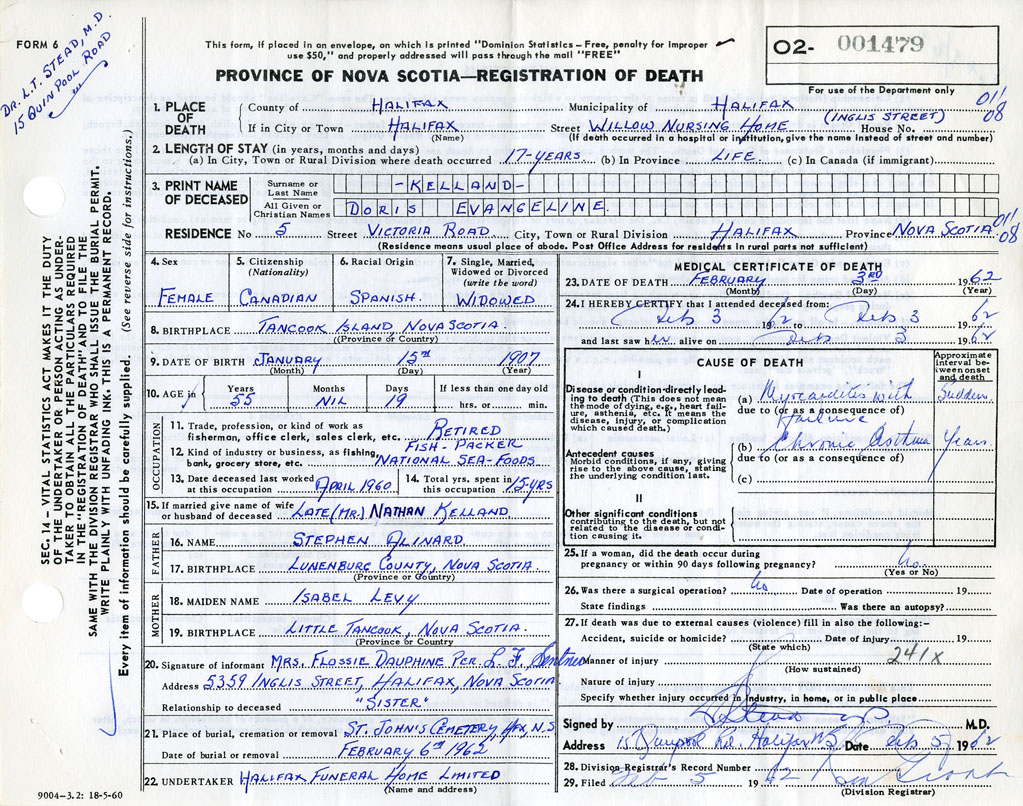 FORM 6
DR. L.T. STEAD, M.D.
15 QUINPOOL ROAD
This form, if placed in an envelope, on which is printed "Dominion Statistics – Free, penalty for improper
use $50," and properly addressed will pass through the mail "FREE"
PROVINCE OF NOVA SCOTIA—REGISTRATION OF DEATH
02- 001479
For use of the Department only
011
08
SEC. 14 – VITAL STATISTICS ACT MAKES IT THE DUTY
OF THE UNDERTAKER OR PERSON ACTING AS UNDER-
TAKER TO OBTAIN ALL THE PARTICULARS REQUIRED
IN THE "REGISTRATION OF DEATH" AND TO FILE THE
SAME WITH THE DIVISION REGISTRAR WHO SHALL ISSUE THE BURIAL PERMIT.
WRITE PLAINLY WITH UNFADING INK. THIS IS A PERMANENT RECORD.
Every item of information should be carefully supplied. (See reverse side for instructions.)
1. PLACE OF DEATH
County of HALIFAX Municipality of HALIFAX
(INGLIS STREET)
If in City or Town HALIFAX Street WILLOW NURSING HOME House No.
(Name) (If death occurred in a hospital or institution, give the name instead of street and number)
2. LENGTH OF STAY (in years, months and days)
(a) In City, Town or Rural Division where death occurred 17-YEARS (b) In Province LIFE (c) In Canada (if immigrant)
3. PRINT NAME OF DECEASED
Surname or Last Name -KELLAND-
All Given or Christian Names DORIS EVANGELINE.
RESIDENCE No 5 Street VICTORIA ROAD City, Town or Rural Division HALIFAX Province NOVA SCOTIA
011
08
(Residence means usual place of abode. Post Office Address for residents in rural parts not sufficient)
4. Sex
FEMALE
5. Citizenship (Nationality)
CANADIAN
6. Racial Origin
SPANISH.
7. Single, Married, Widowed or Divorced (write the word)
WIDOWED
8. BIRTHPLACE TANCOOK ISLAND, NOVA SCOTIA.
(Province or Country)
9. DATE OF BIRTH JANUARY 15TH 1907
(Month) (Day) (Year)
10. AGE in Years Months Days If less than one day old
55 NIL 19 hrs. or min.
OCCUPATION
11. Trade, profession, or kind of work as
fisherman, office clerk, sales clerk, etc. RETIRED
FISH-PACKER
12. Kind of industry or business, as fishing,
bank, grocery store, etc. NATIONAL SEA-FOODS
13. Date deceased last worked at this occupation APRIL 1960
14. Total yrs. spent in this occupation 15-YRS
15. If married give name of wife
or husband of deceased LATE (MR.) NATHAN KELLAND
FATHER
16. NAME STEPHEN OLINARD.
17. BIRTHPLACE LUNENBURG COUNTY, NOVA SCOTIA
(Province or Country)
MOTHER
18. MAIDEN NAME ISABEL LEVY
19. BIRTHPLACE LITTLE TANCOOK, NOVA SCOTIA.
(Province or Country)
20. Signature of informant MRS. FLOSSIE DAUPHINE PER. L. F.
Address 5359 INGLIS STREET, HALIFAX, NOVA SCOTIA
Relationship to deceased "SISTER"
21. Place of burial, cremation or removal ST. JOHN'S CEMETERY, HFX, N.S.
Date of burial or removal FEBRUARY 6TH 1962
22. UNDERTAKER HALIFAX FUNERAL HOME LIMITED
(Name and address)
9004–3.2: 18-5-60
MEDICAL CERTIFICATE OF DEATH
23. DATE OF DEATH FEBRUARY 3RD 1962
(Month) (Day) (Year)
24. I HEREBY CERTIFY that I attended deceased from:
Feb 3 1962 to Feb 3 1962
and last saw her alive on Feb 3 1962
CAUSE OF DEATH
Approximate interval between onset and death
I
Disease or condition directly leading to death (This does not mean the mode of dying, e.g., heart failure, asthenia, etc. It means the disease, injury, or complication which caused death.)
(a) Myocarditis with Sudden
due to (or as a consequence of)
failure
Antecedent causes
Morbid conditions, if any, giving rise to the above cause, stating the underlying condition last.
(b) Chronic Asthma Years
due to (or as a consequence of)
(c)
II
Other significant conditions
contributing to the death, but not related to the disease or condition causing it.
25. If a woman, did the death occur during
pregnancy or within 90 days following pregnancy? No
(Yes or No)
26. Was there a surgical operation? No Date of operation 19
State findings Was there an autopsy?
27. If death was due to external causes (violence) fill in also the following:–
Accident, suicide or homicide? Date of injury 19
(State which)
241X
Manner of injury
(How sustained)
Nature of injury
Specify whether injury occurred in industry, in home, or in public place
Signed by M.D.
Address 15 Quinpool Rd. Halifax NS Date Feb 5 1962
28. Division Registrar's Record Number
29. Filed Feb 5 1962
(Division Registrar)